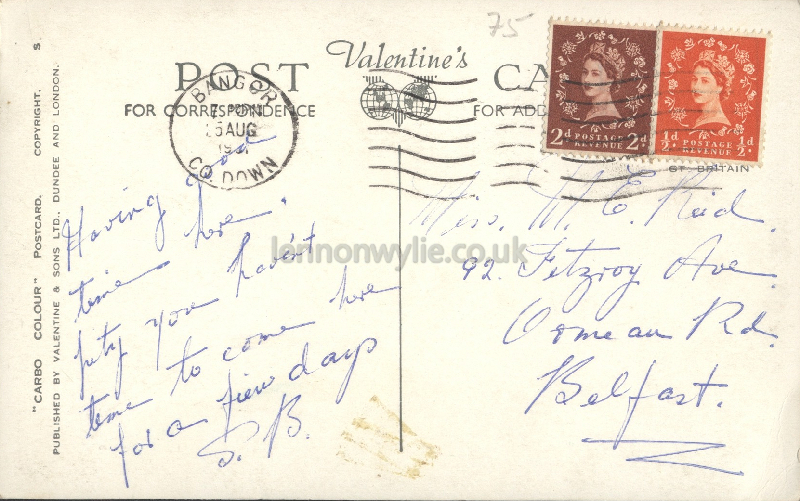 75
Valentine's
POST CA
FOR CORRESPONDENCE FOR ADD
BANGOR
7
AUG
CO. DOWN
2d POSTAGE REVENUE 2d
½d POSTAGE REVENUE ½d
GT BRITAIN
"CARBO COLOUR" POSTCARD. COPYRIGHT. S.
PUBLISHED BY VALENTINE & SONS LTD., DUNDEE AND LONDON.
Having good
time here.
pity you haven't
time to come here
for a few days
S.B.
Miss. M. E. Reid.
92. Fitzroy Ave.
Ormeau Rd.
Belfast.
lennonwylie.co.uk